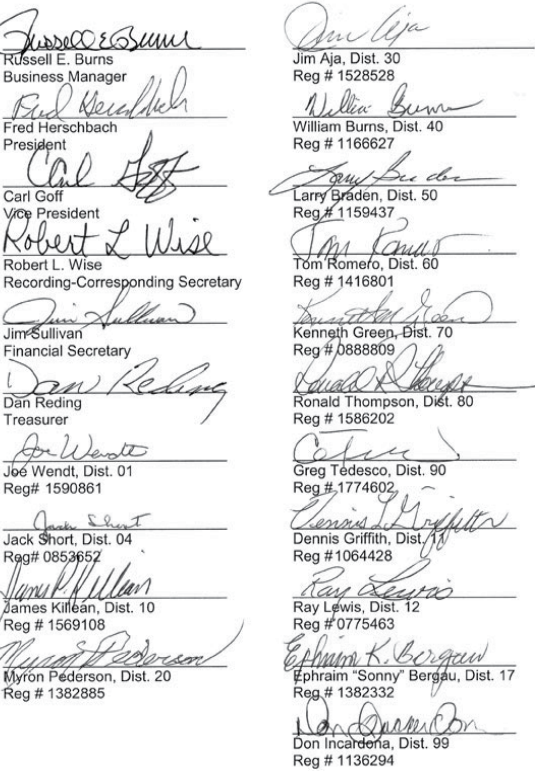 Russell E Burns
Russell E. Burns
Business Manager
Fred Herschbach
Fred Herschbach
President
Carl Goff
Carl Goff
Vice President
Robert L Wise
Robert L. Wise
Recording-Corresponding Secretary
Jim Sullivan
Jim Sullivan
Financial Secretary
Dan Reding
Dan Reding
Treasurer
Joe Wendt
Joe Wendt, Dist. 01
Reg# 1590861
Jack Short
Jack Short, Dist. 04
Reg# 0853652
James P. Killean
James Killean, Dist. 10
Reg # 1569108
Myron Pederson
Myron Pederson, Dist. 20
Reg # 1382885
Jim Aja
Jim Aja, Dist. 30
Reg # 1528528
William Burns
William Burns, Dist. 40
Reg # 1166627
Larry Braden
Larry Braden, Dist. 50
Reg # 1159437
Tom Romero
Tom Romero, Dist. 60
Reg # 1416801
Kenneth Green
Kenneth Green, Dist. 70
Reg # 0888809
Ronald Thompson, Dist. 80
Reg # 1586202
Greg Tedesco, Dist. 90
Reg # 1774602
Dennis L Griffith
Dennis Griffith, Dist. 11
Reg #1064428
Ray Lewis
Ray Lewis, Dist. 12
Reg # 0775463
Ephraim K. Bergau
Ephraim "Sonny" Bergau, Dist. 17
Reg # 1382332
Don Incardona, Dist. 99
Reg # 1136294